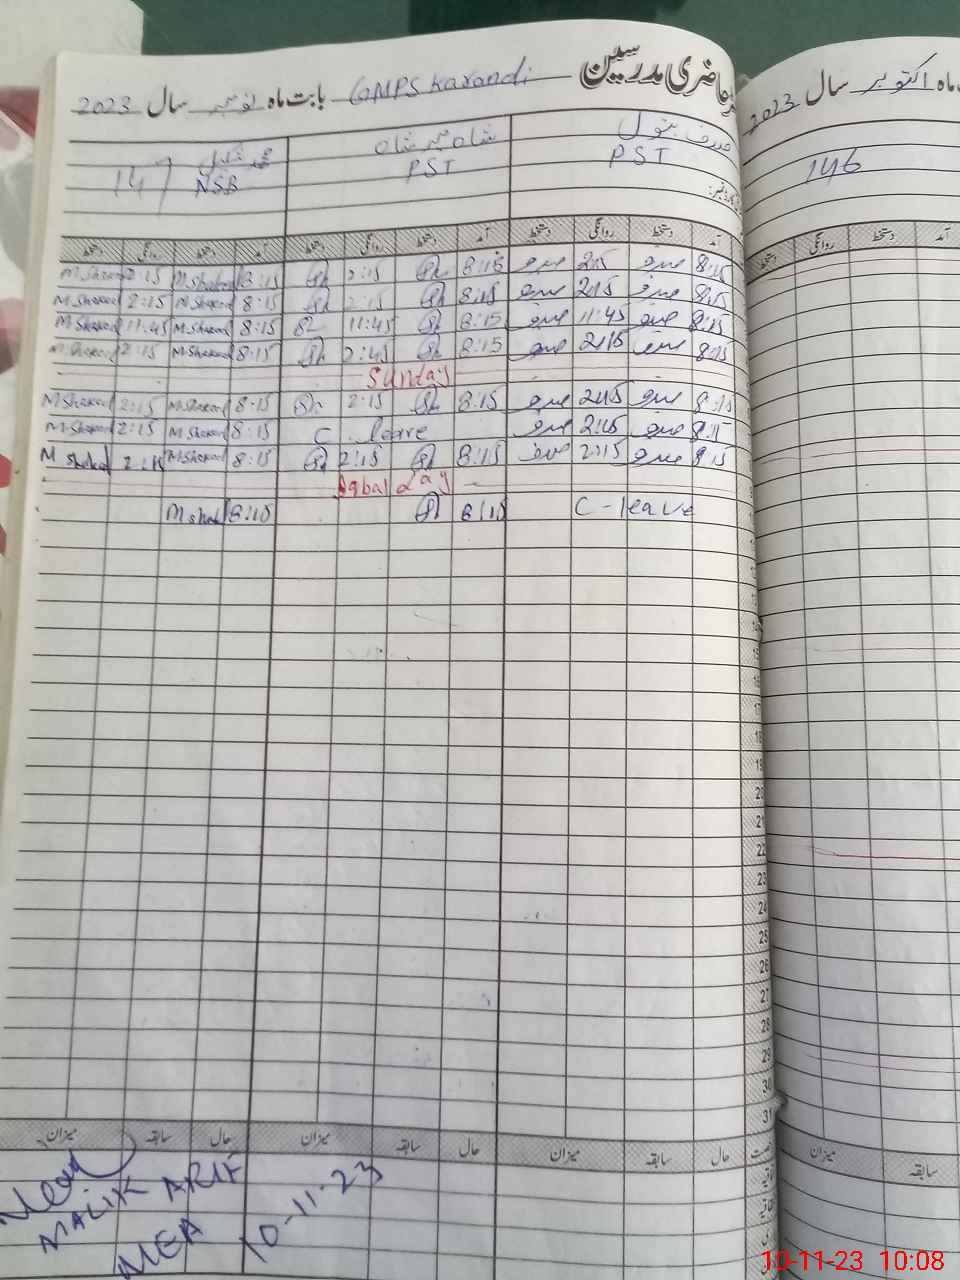 حاضری مدرسین GMPS Karandi بابت ماہ نومبر سال 2023
ماہ اکتوبر سال 2023
شاہ
بتول
147 NSB PST PST
146
دستخط روانگی دستخط آمد دستخط روانگی دستخط آمد دستخط روانگی دستخط آمد
دستخط روانگی دستخط آمد
2:15 M Shakeel 8:15 2:15 8:15 2:15 8:15
M Shakeel 2:15 M Shakeel 8:15 2:15 8:15 2:15 8:15
M Shakeel 11:45 M Shakeel 8:15 11:45 8:15 11:45 8:15
M Shakeel 2:15 M Shakeel 8:15 2:45 8:15 2:15 8:15
Sunday
M Shakeel 2:15 M Shakeel 8:15 2:15 8:15 2:15 8:15
M Shakeel 2:15 M Shakeel 8:15 C leave 2:15 8:15
M Shakeel 2:15 M Shakeel 8:15 2:15 8:15 2:15 8:15
Iqbal day
8:15 8:15 C-leave
15
16
17
18
19
20
21
22
23
24
25
26
27
28
29
30
31
میزان سابقہ حال میزان سابقہ حال میزان سابقہ حال
میزان سابقہ
MALIK ARIF
MEA
10-11-23
10-11-23 10:08